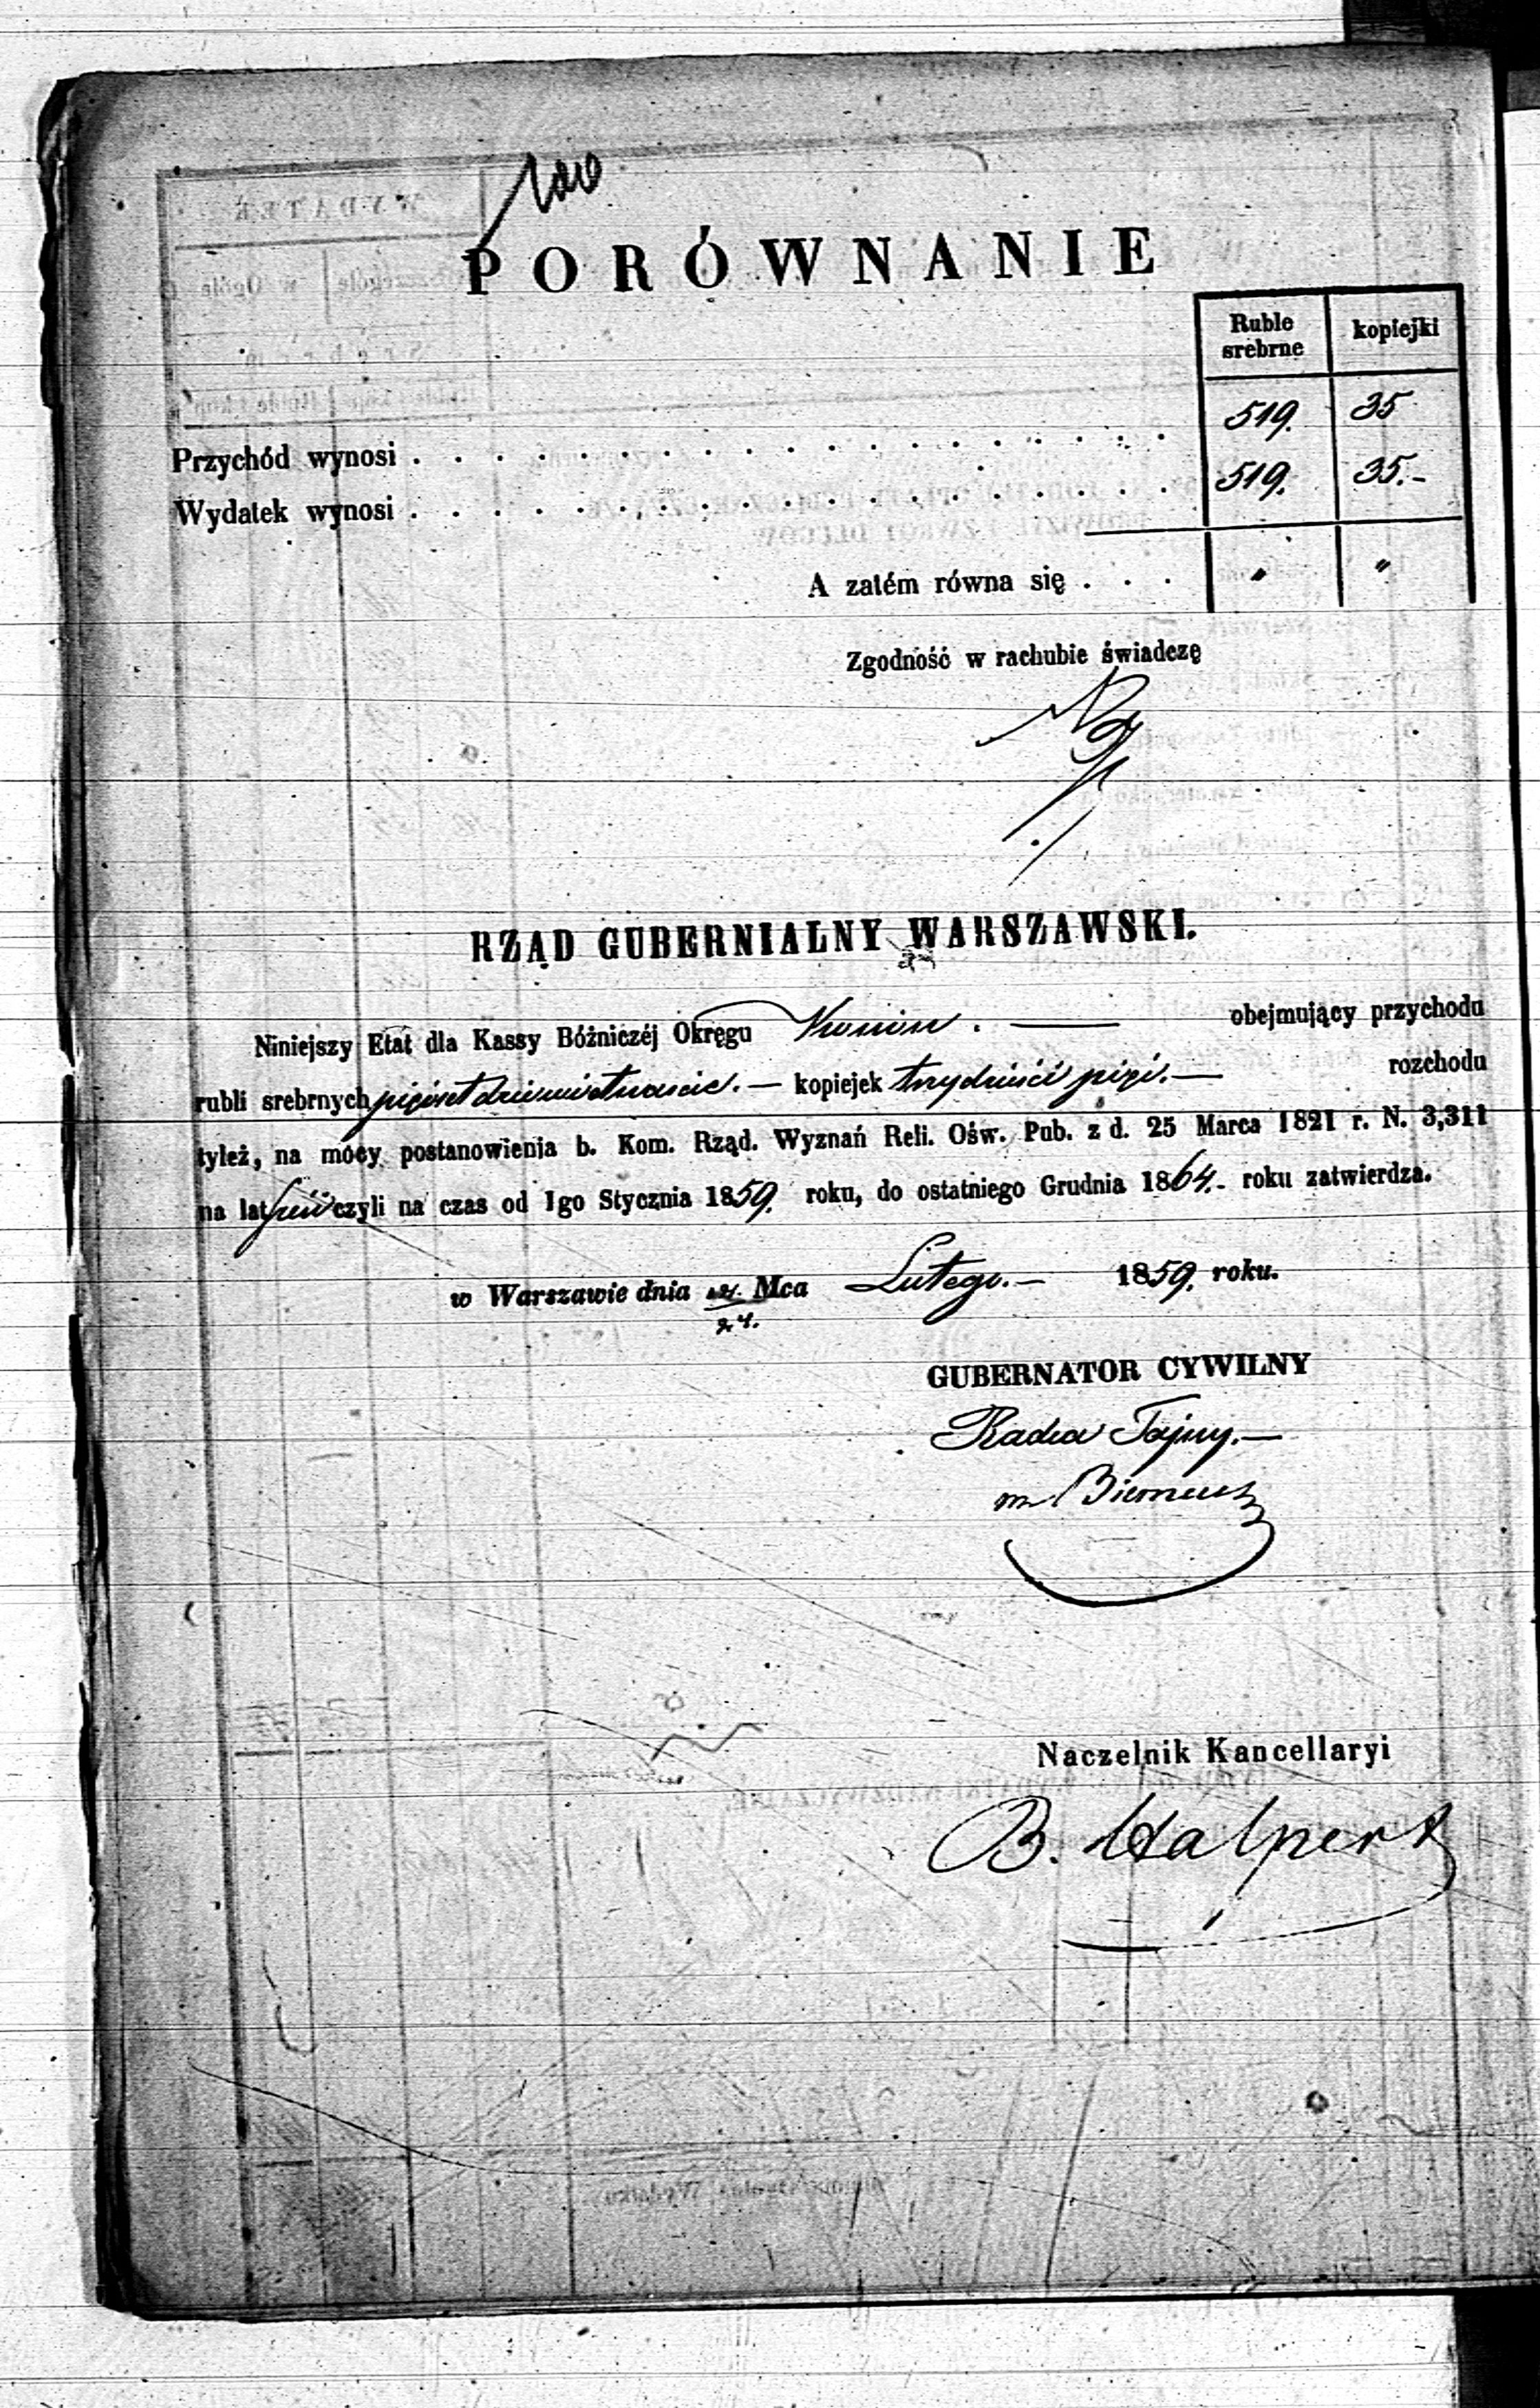 PORÓWNANIE
Ruble srebrne kopiejki
Przychód wynosi . . . . . . . . . . . . . . . . . . . 519. 35
Wydatek wynosi . . . . . . . . . . . . . . . . . . . 519. 35.-
A zatém równa się . . . " "
Zgodność w rachubie świadczę
RZĄD GUBERNIALNY WARSZAWSKI.
Niniejszy Etat dla Kassy Bóżniczéj Okręgu obejmujący przychodu
rubli srebrnych pięćset dziewiętnaście. — kopiejek trzydzieści pięć. — rozchodu
tyleż, na mócy postanowienia b. Kom. Rząd. Wyznań Reli. Ośw. Pub. z d. 25 Marca 1821 r. N. 3,311
na lat sześć czyli na czas od 1go Stycznia 1859. roku, do ostatniego Grudnia 1864.- roku zatwierdza.
w Warszawie dnia Mca Lutego. — 1859. roku.
24.
GUBERNATOR CYWILNY
Radca Tajny. —
Naczelnik Kancellaryi
B. Halpert